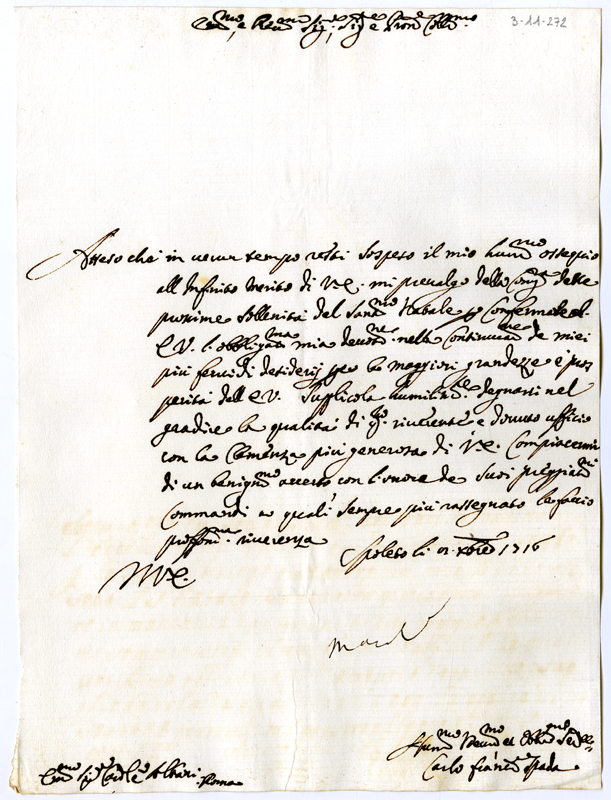 3-11-272
Em.mo e Rev.mo Sig.re Sig.re e Pron Coll.mo
Atteso che in uerun tempo resti sospeso il mio hum.mo ossequio
all Infinito Merito di V.E. mi preualgo della cong.a delle
prossime sollenità del Sant.mo Natale per Confermare al
E.V. l'obbligat.ma mia deuot.ne nella Continuat.ne de miei
più feruidi desiderij per le maggiori grandezze e pros
perità dell E.V. Supplicola humilm.te degnarsi nel
gradire la qualità di q.to riuerente e douuto ufficio
con la Clemenza più generosa di V.E. Compiacermi
di un benign.mo accerto con l'onore de suoi preggiat.mi
Commandi a quali sempre più rassegnato le faccio
proffon.ma riuerenza
Spoleto li Xbre 1716
D V.E.
Hum.mo Deuot.mo et Obb.mo Ser.re
Carlo Franc.o Spada
Em.mo Sig.r Card.le Albani Roma